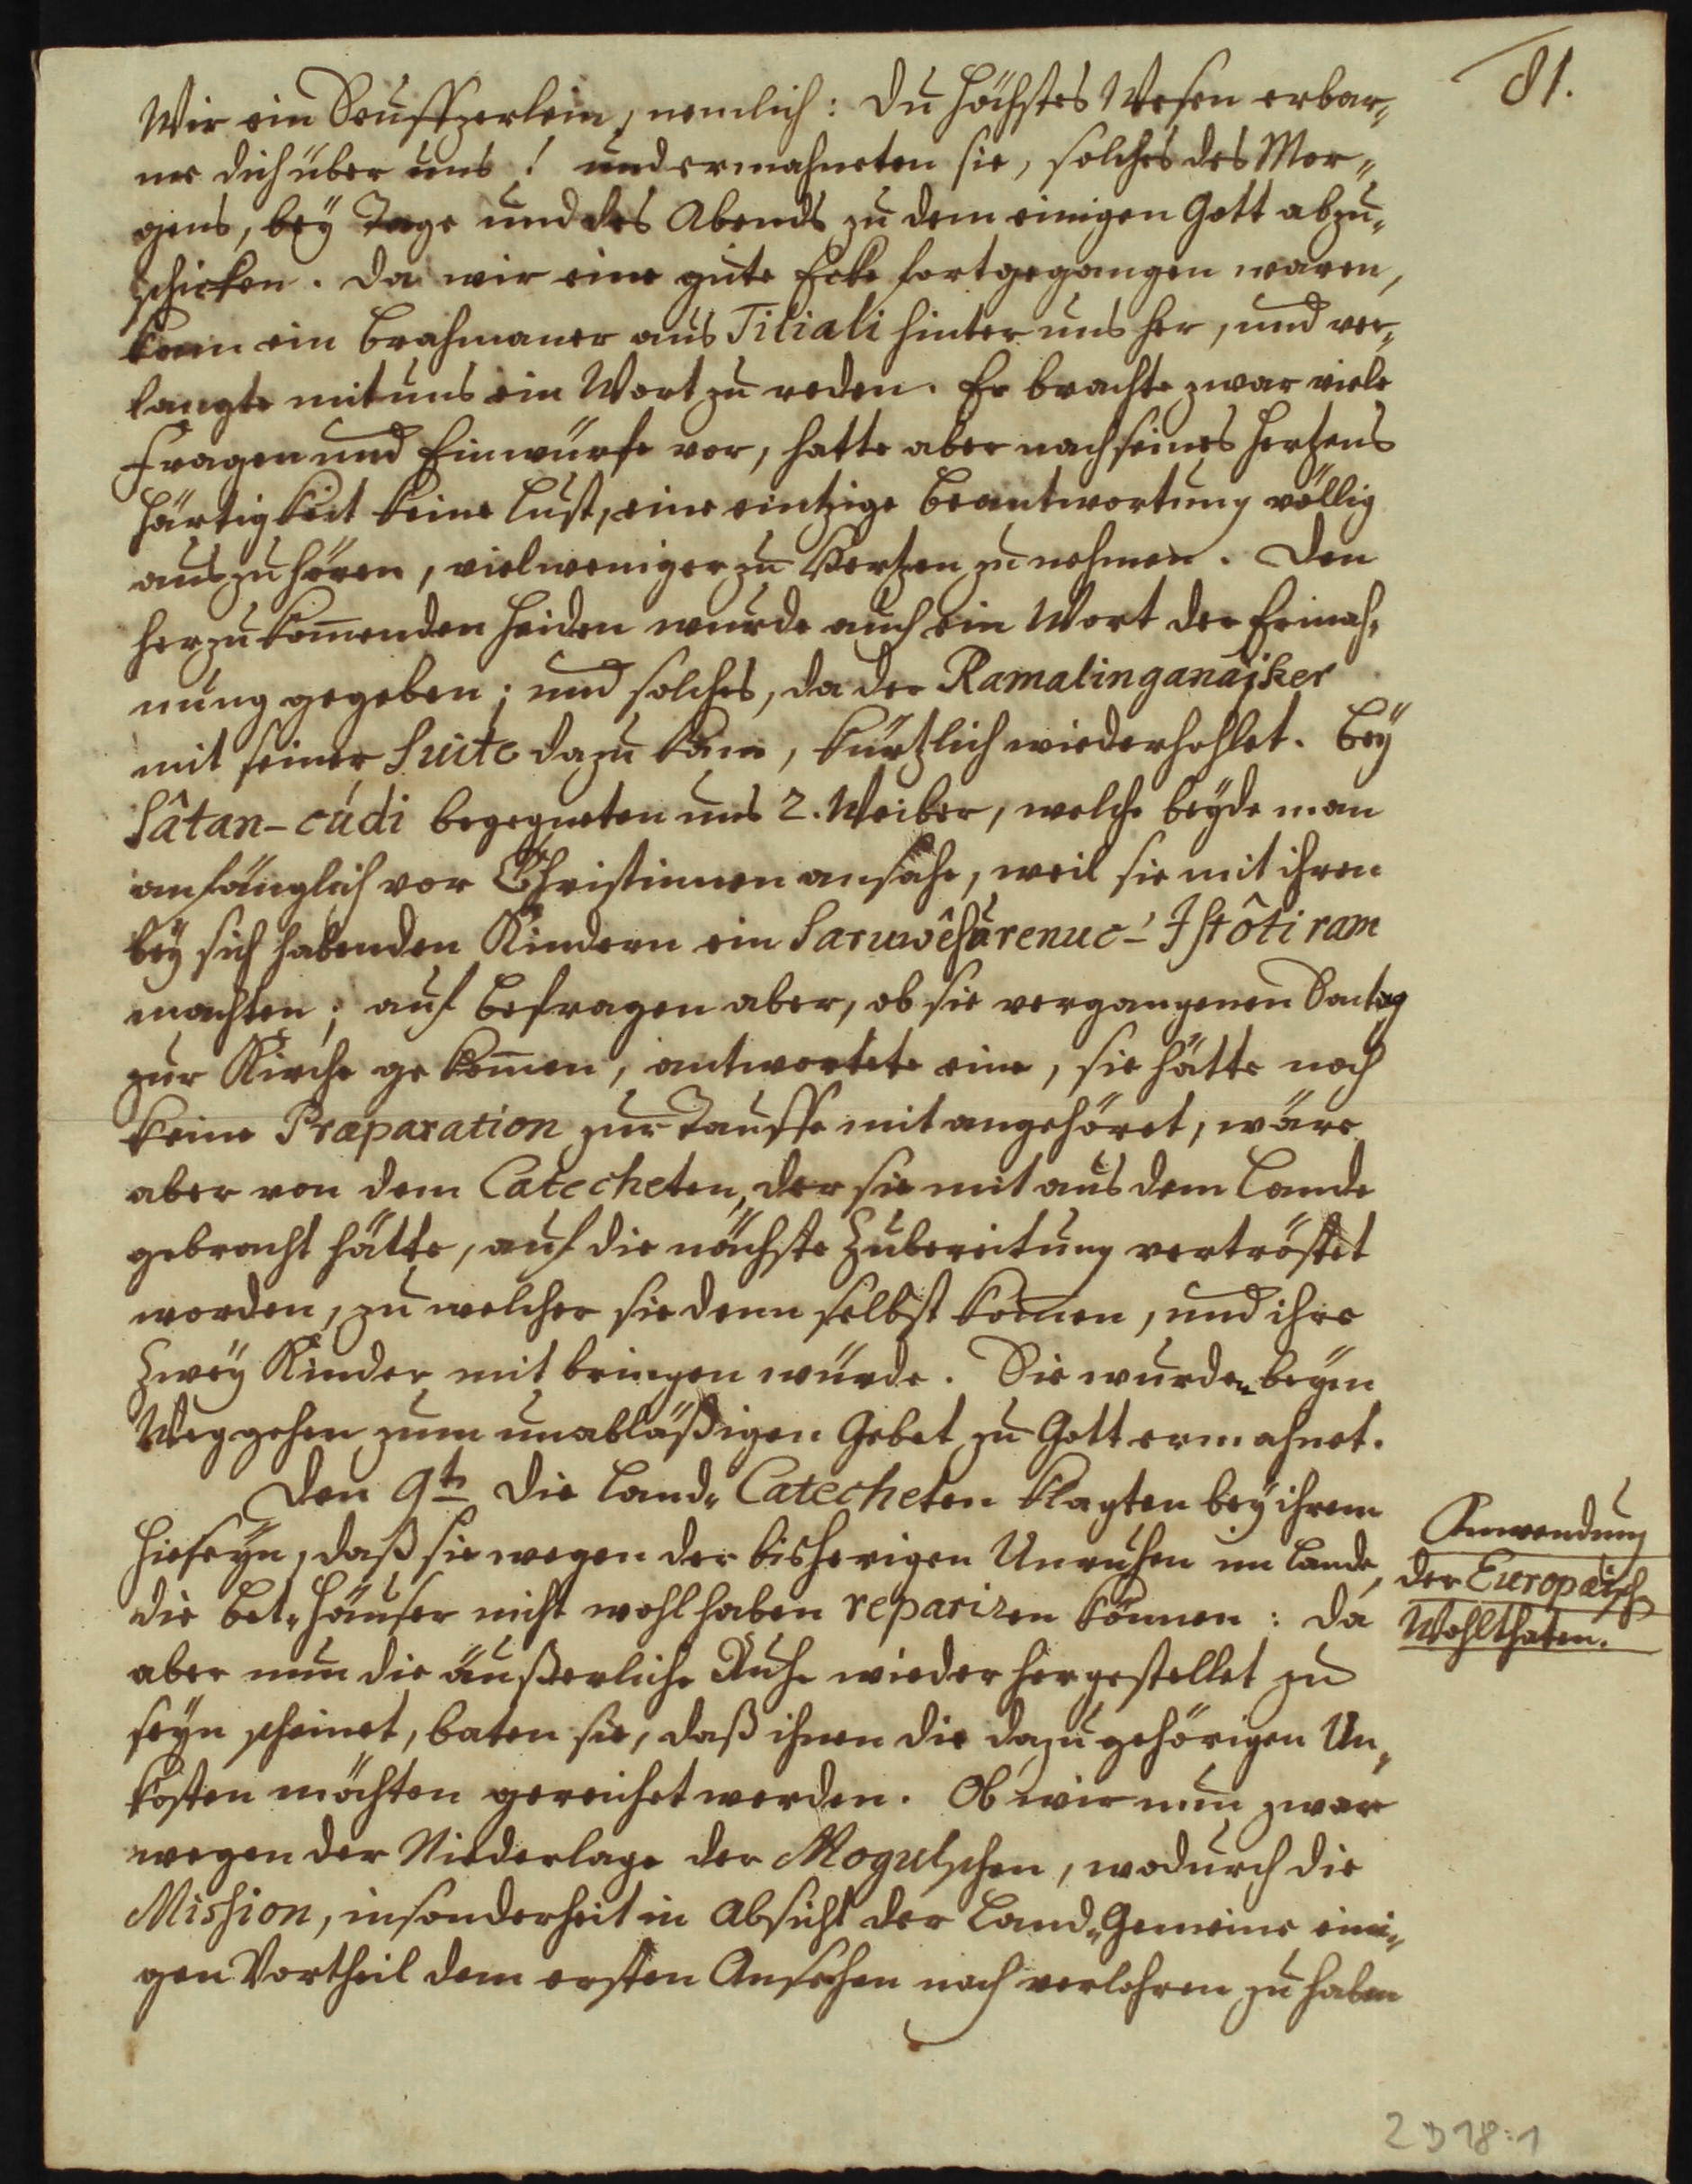 81.
Wir ein Seuffzerlein, nemlich: Du höchstes Wesen erbar„
me dich über uns! und ermahneten sie, solches des Mor„
gens, bey Tage und des Abends zu dem einigen Gott abzu„
schicken. Da wir eine gute Ecke fortgegangen waren,
kam ein Brahmaner aus Tiliali hinter uns her, und ver„
langte mit uns ein Wort zu reden. Er brachte zwar viele
Fragen und Einwürfe vor, hatte aber nach seines Hertzens
Härtigkeit keine Lust, eine eintzige Beantwortung völlig
auszuhören, vielweniger zu Hertzen zu nehmen. Den
herzukom̄enden Heiden wurde auch ein Wort der Ermah„
nung gegeben; und solches, da der Ramalinganaiker
mit seiner Suite dazu kam, kürtzlich wiederhohlet. Bey
Sâtan-cúdi begegneten uns 2. Weiber, welche beyde man
anfänglich vor Christinnen ansahe, weil sie mit ihren
bey sich habenden Kindern ein Saruwêsurenuc-Istôtiram
machten; auf Befragen aber, ob sie vergangenen Sontag
zur Kirche gekom̄en, antwortete eine, sie hätte noch
keine Præparation zur Tauffe mit angehöret, wäre
aber von dem Catecheten, der sie mit aus dem Lande
gebracht hätte, auf die nächste Zubereitung vertröstet
worden, zu welcher sie denn selbst kom̄en, und ihre
zwey Kinder mit bringen würde. Sie wurden beym
Weggehen zum unabläßigen Gebet zu Gott ermahnet.
Den 9t. Die Land„Catecheten klagten bey ihrem
Hieseyn, daß sie wegen der bisherigen Unruhen im Lande,
die Bet„Häuser nicht wohl haben repariren können: Da
aber nun die äußerliche Ruhe wieder hergestellet zu
seyn scheinet, baten sie, daß ihnen die dazu gehörigen Un„
kosten möchten gereichet werden. Ob wir nun zwar
wegen der Niederlage der Mogulschen, wodurch die
Mission, insonderheit in Absicht der Land„Gemeine eini„
gen Vortheil dem ersten Ansehen nach verlohren zu haben
Anwendung
der Europäisch
Wohlthaten.
2 D 18:1